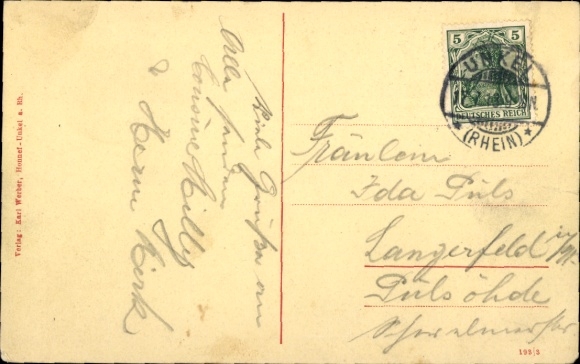 Verlag: Karl Werber, Honnef-Unkel a. Rh.
Viele Grüße an
Alle senden
Cousine Milly
& Herm
5 5
DEUTSCHES REICH
UNKEL
* (RHEIN) *
Fräulein
Ida Püls
Langerfeld i/W.
Pülsöhde